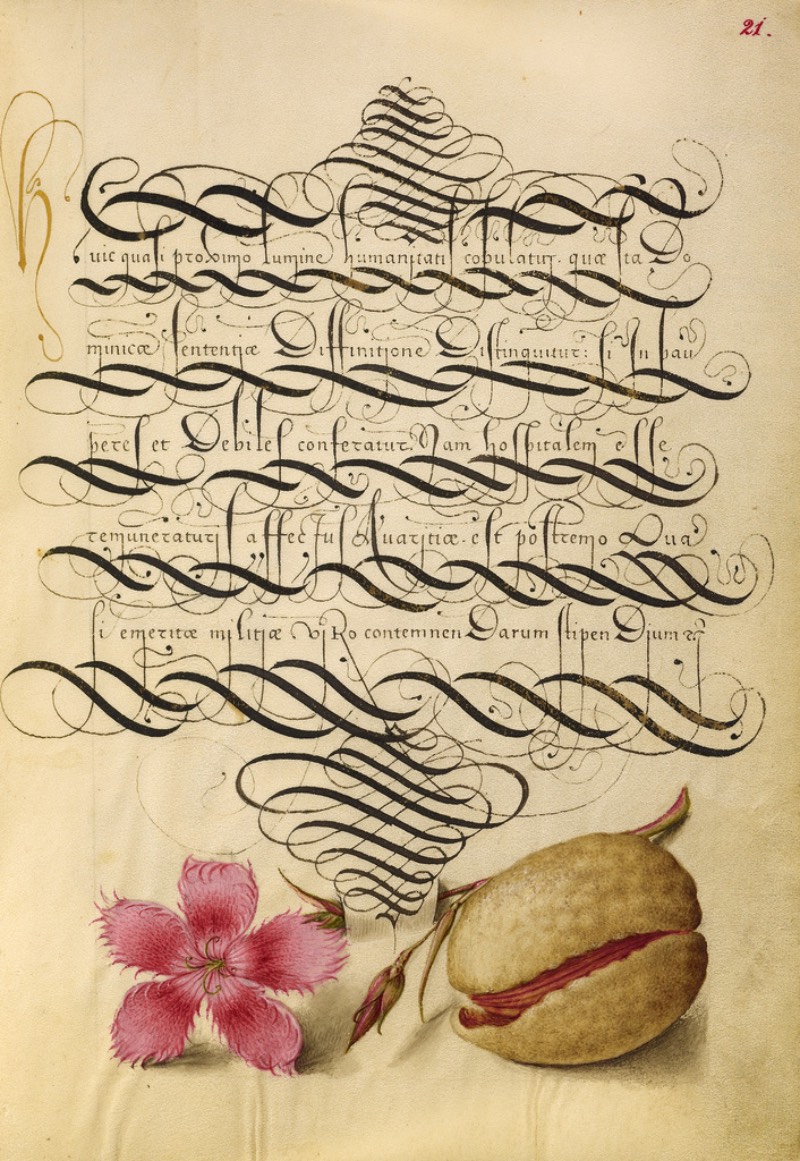 21.
Huic quasi proximo lumine humanitatis copulatur. quæ sta Do
minicæ sententiæ Diffinitione Distinguitur: si In pau
peres et Debiles conferatur. Nam hospitalem esse
remuneraturis affectus Auaritiæ. est postremo Qua
si emeritæ militiæ viRo contemnenDarum stipenDium